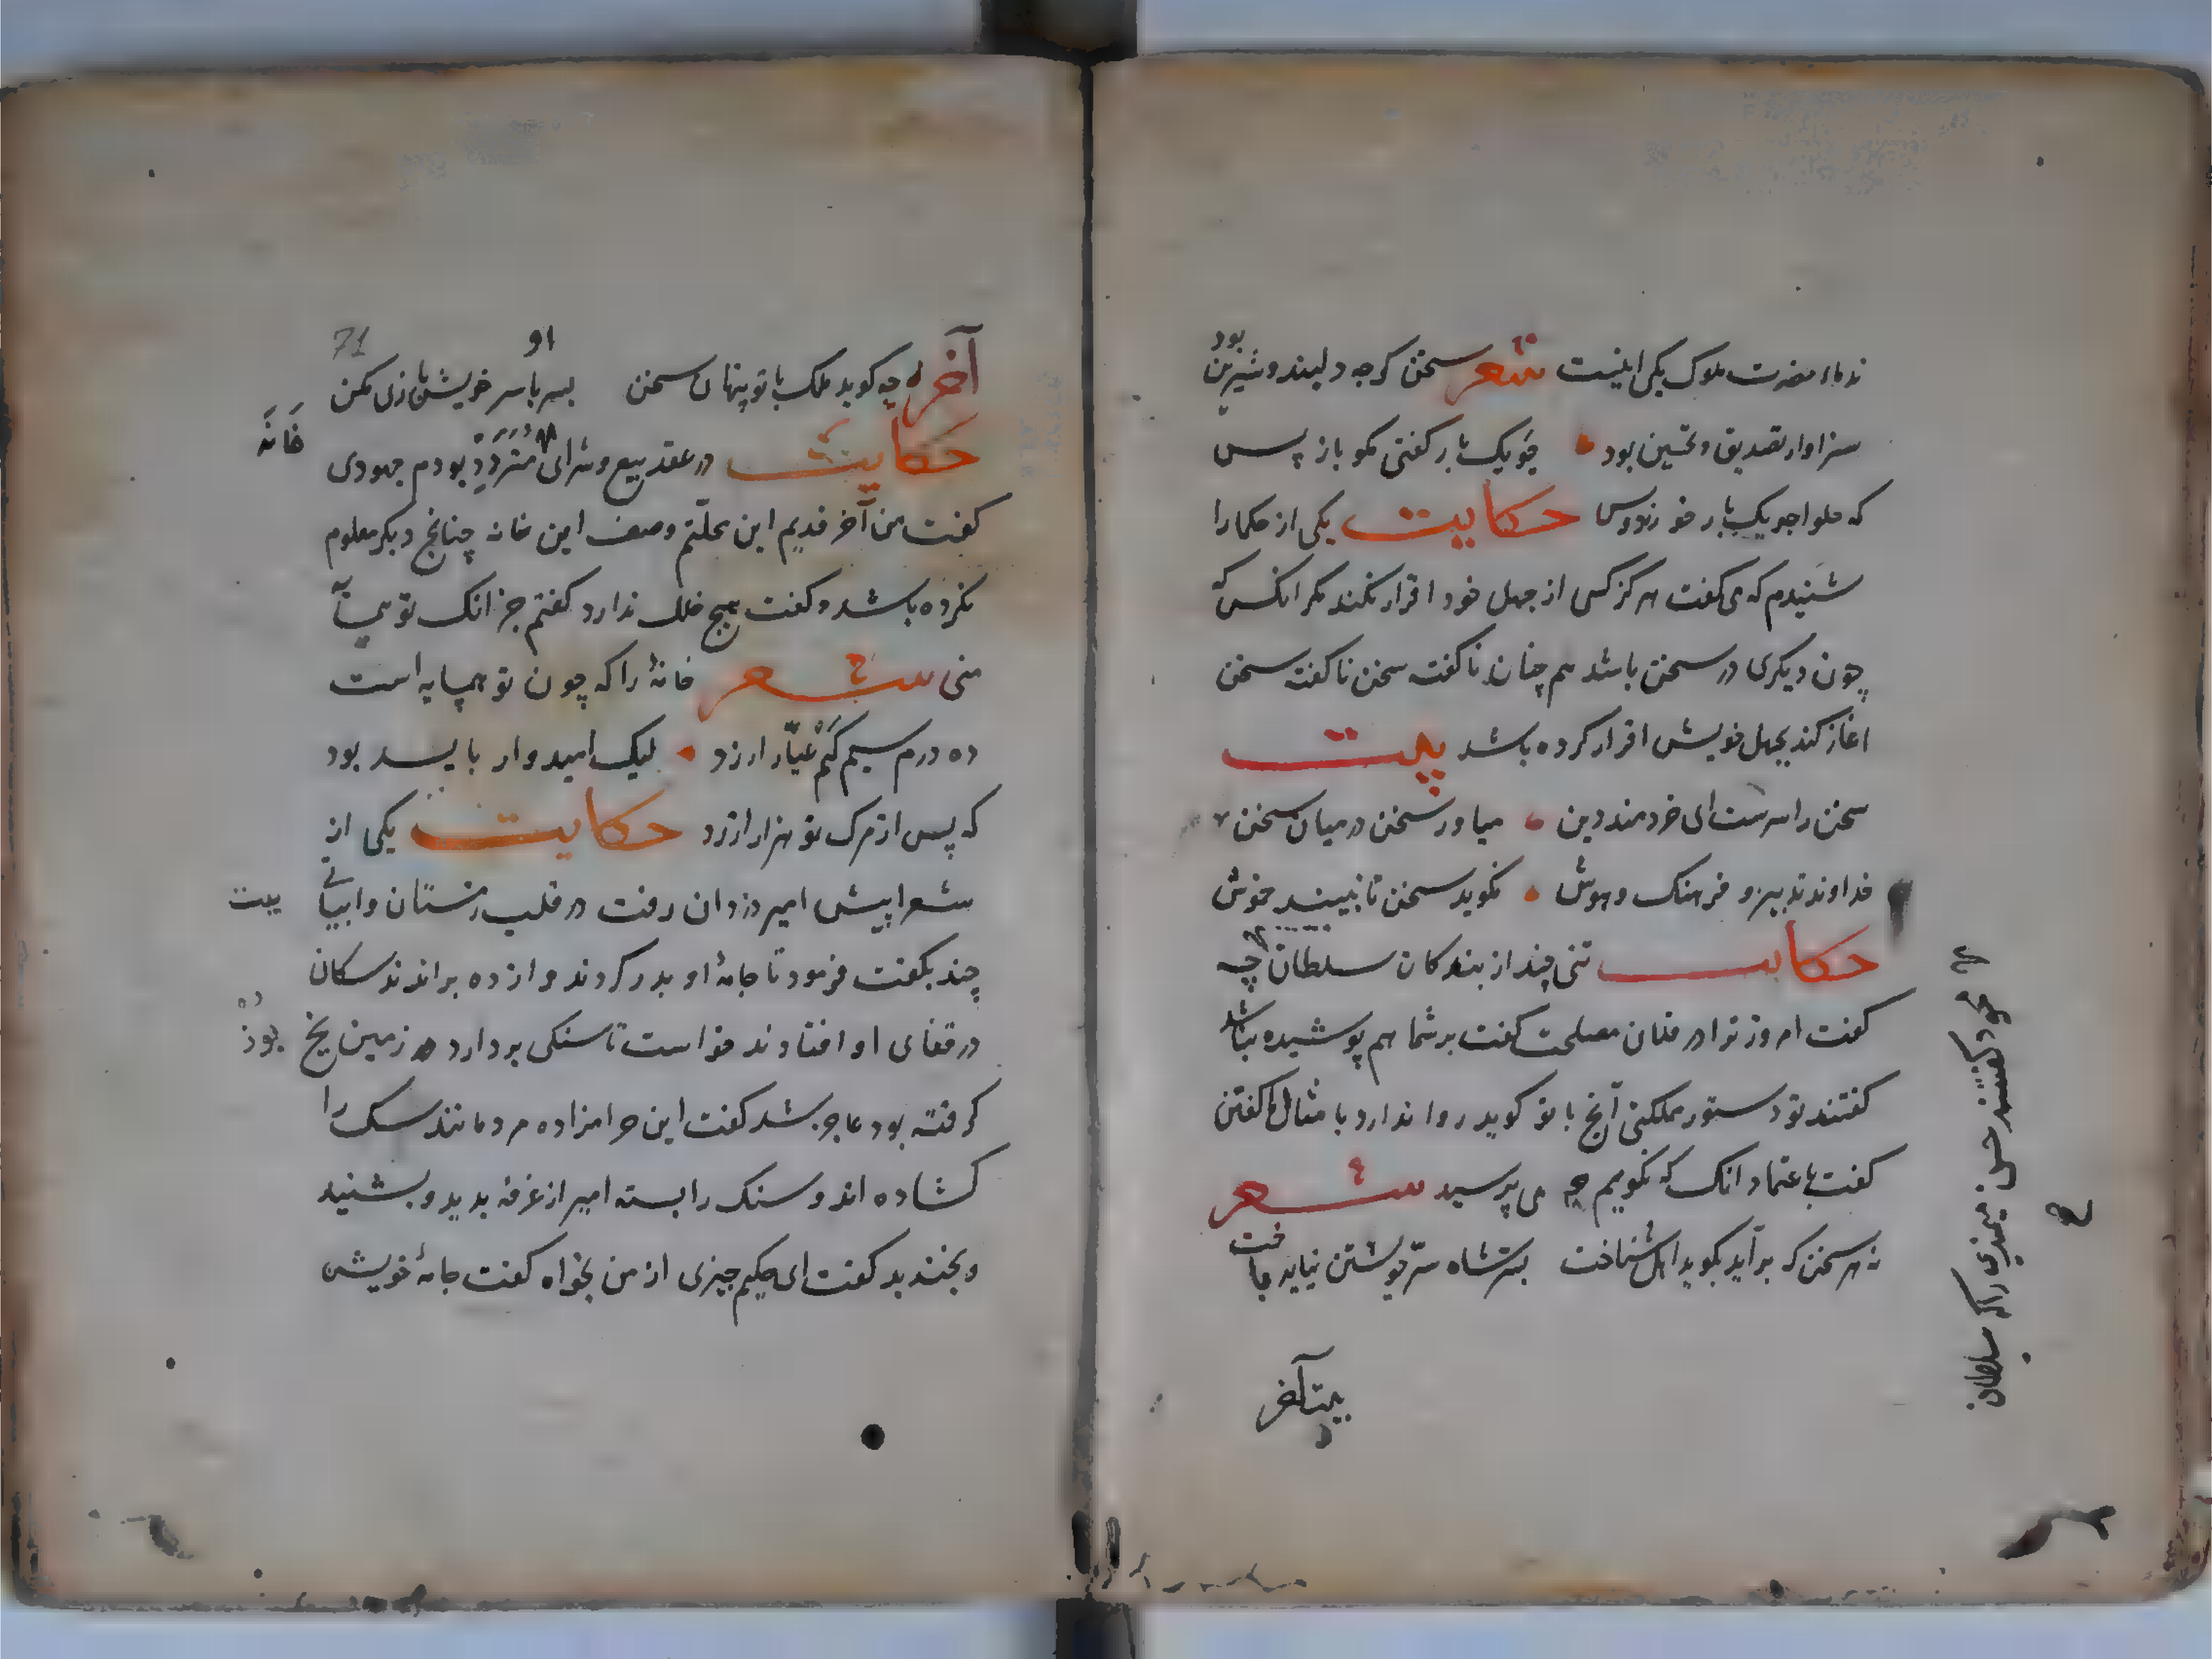 ندماء حضرت ملوک یکی اینست شعر سخن کرچه دلبند و شیرین بود
سزاوار تصدیق و تحسین بود چو یک بار کفتی مکو باز پس
که حلوا چو یک بار خوردند و بس حکایت یکی از حکما را
شنیدم که می کفت هرکز کسی از جهل خود اقرار نکند مکر انکس که
چون دیکری در سخن باشد هم چنان ناکفته سخن ناکفته سخن
اغاز کند بجهل خویش اقرار کرده باشد بیت
سخن را سرست ای خردمند و بن میاور سخن در میان سخن
خداوند تدبیر و فرهنک و هوش نکوید سخن تا نبیند خموش
حکایت تنی چند از بندکان سلطان چه
کفت امروز ترا در فلان مصلحت کفت بر شما هم پوشیده نباشد
کفتند تو دستور مملکتی آنچ با تو کوید روا ندارد با مثال ما کفتن
کفت باعتماد انک که نکویم چه می پرسید شعر
نه هر سخن که برآید بکوید اهل شناخت بسر شاه سر خویشتن نباید باخت
بیت آخر
محمود کفتند حسن میمندی را که سلطان
71
او
آخر چه کوید ملک با تو پنهان سخن بسر با سر خویش بازی مکن
حکایت در عقد بیع و شرای متردد بودم جهودی
خانه
کفت من آخر قدیم این محلتم وصف این خانه چنانچ دیکر معلوم
نکرده باشد و کفت هیچ خلل ندارد کفتم جز انک تو همسایه
منی شعر خانهٔ را که چون تو همسایه است
ده درم سیم کم عیار ارزد لیک امیدوار باید بود
که پس از مرک تو هزار ارزد حکایت یکی از
شعرا پیش امیر دزدان رفت در قلب زمستان و ابیاتی
بیت
چند بکفت فرمود تا جامهٔ او بدر کردند و از ده براندند سکان
در قفای او افتادند خواست تا سنکی بردارد زمین یخ
بود
کرفته بود عاجز شد کفت این حرامزاده مردمانند سک را
کشاده اند و سنک را بسته امیر از غرفه بدید و بشنید
و بخندید کفت ای حکیم چیزی از من بخواه کفت جامهٔ خویش